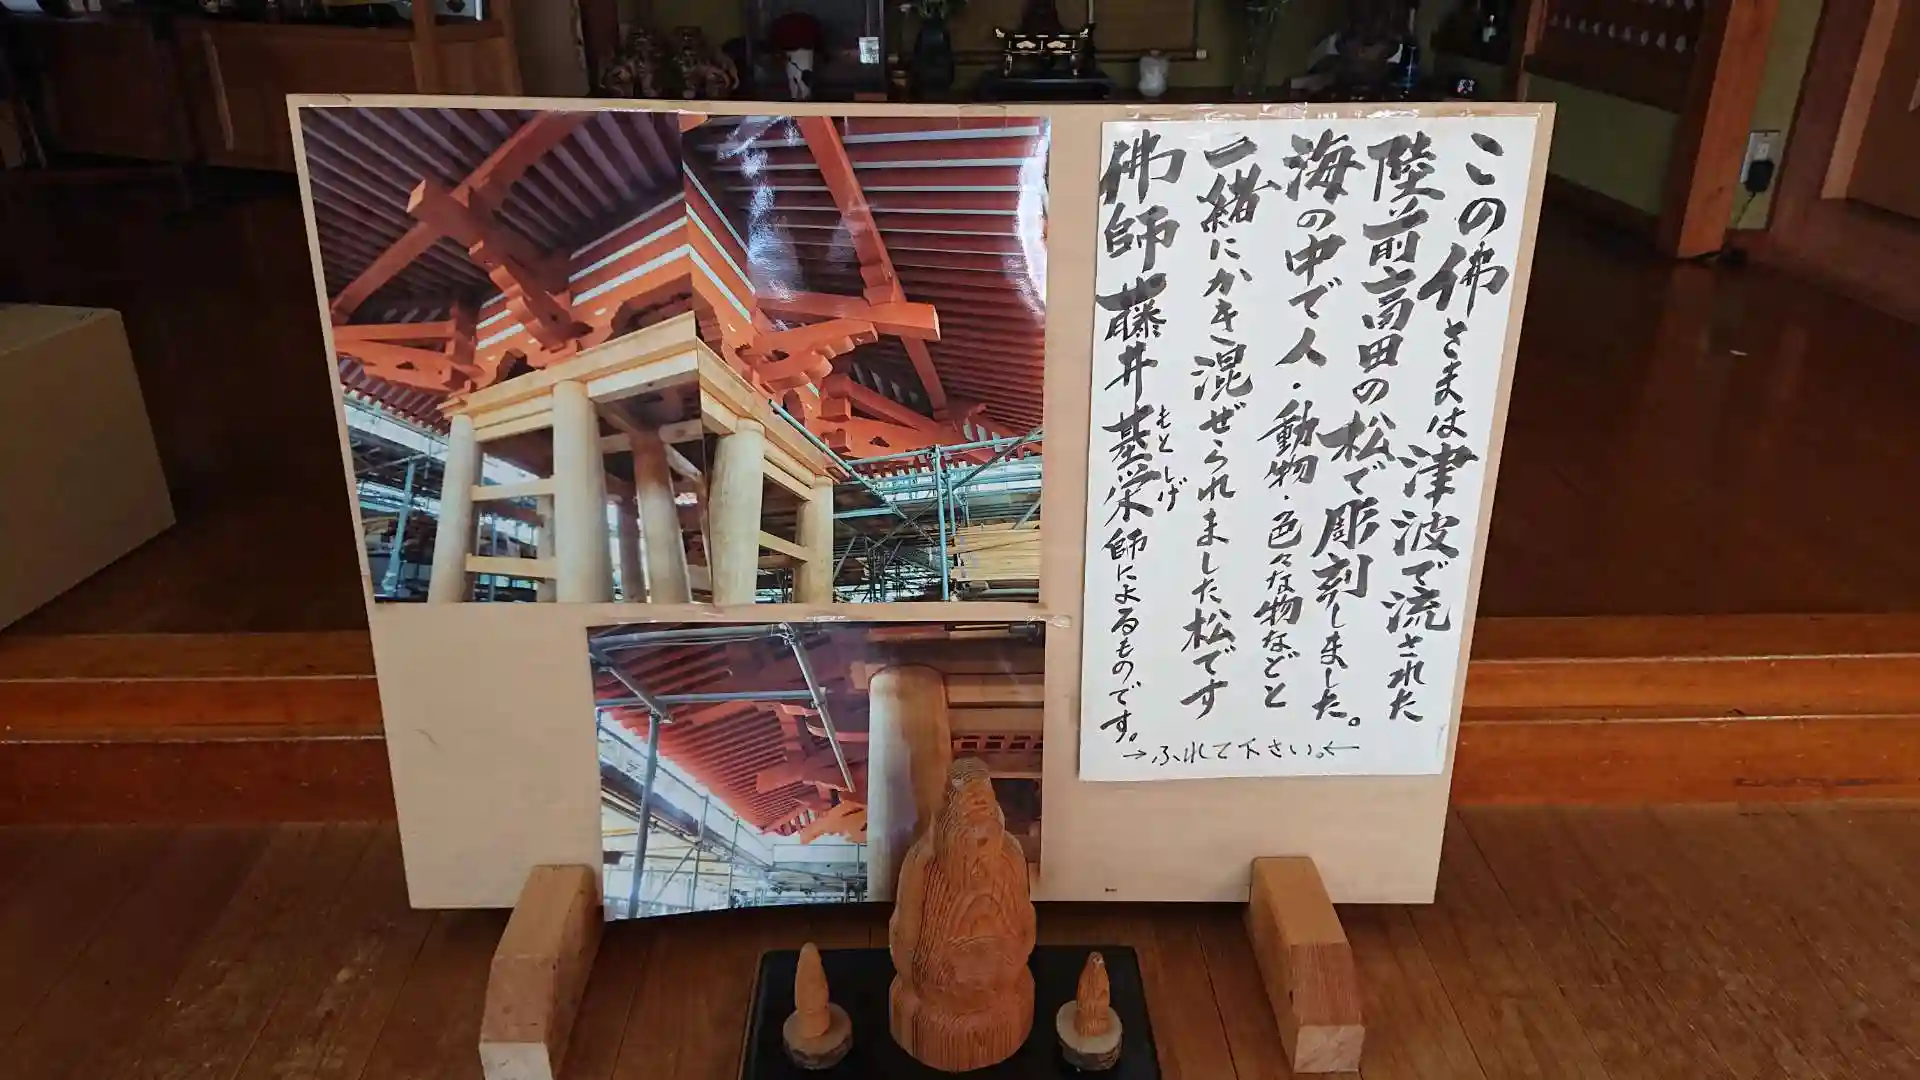 この佛さまは津波で流された
陸前高田の松で彫刻しました。
海の中で人・動物・色々な物などと
一緒にかき混ぜられました松です
佛師藤井基栄師によるものです。
もとしげ
→ふれて下さい。←